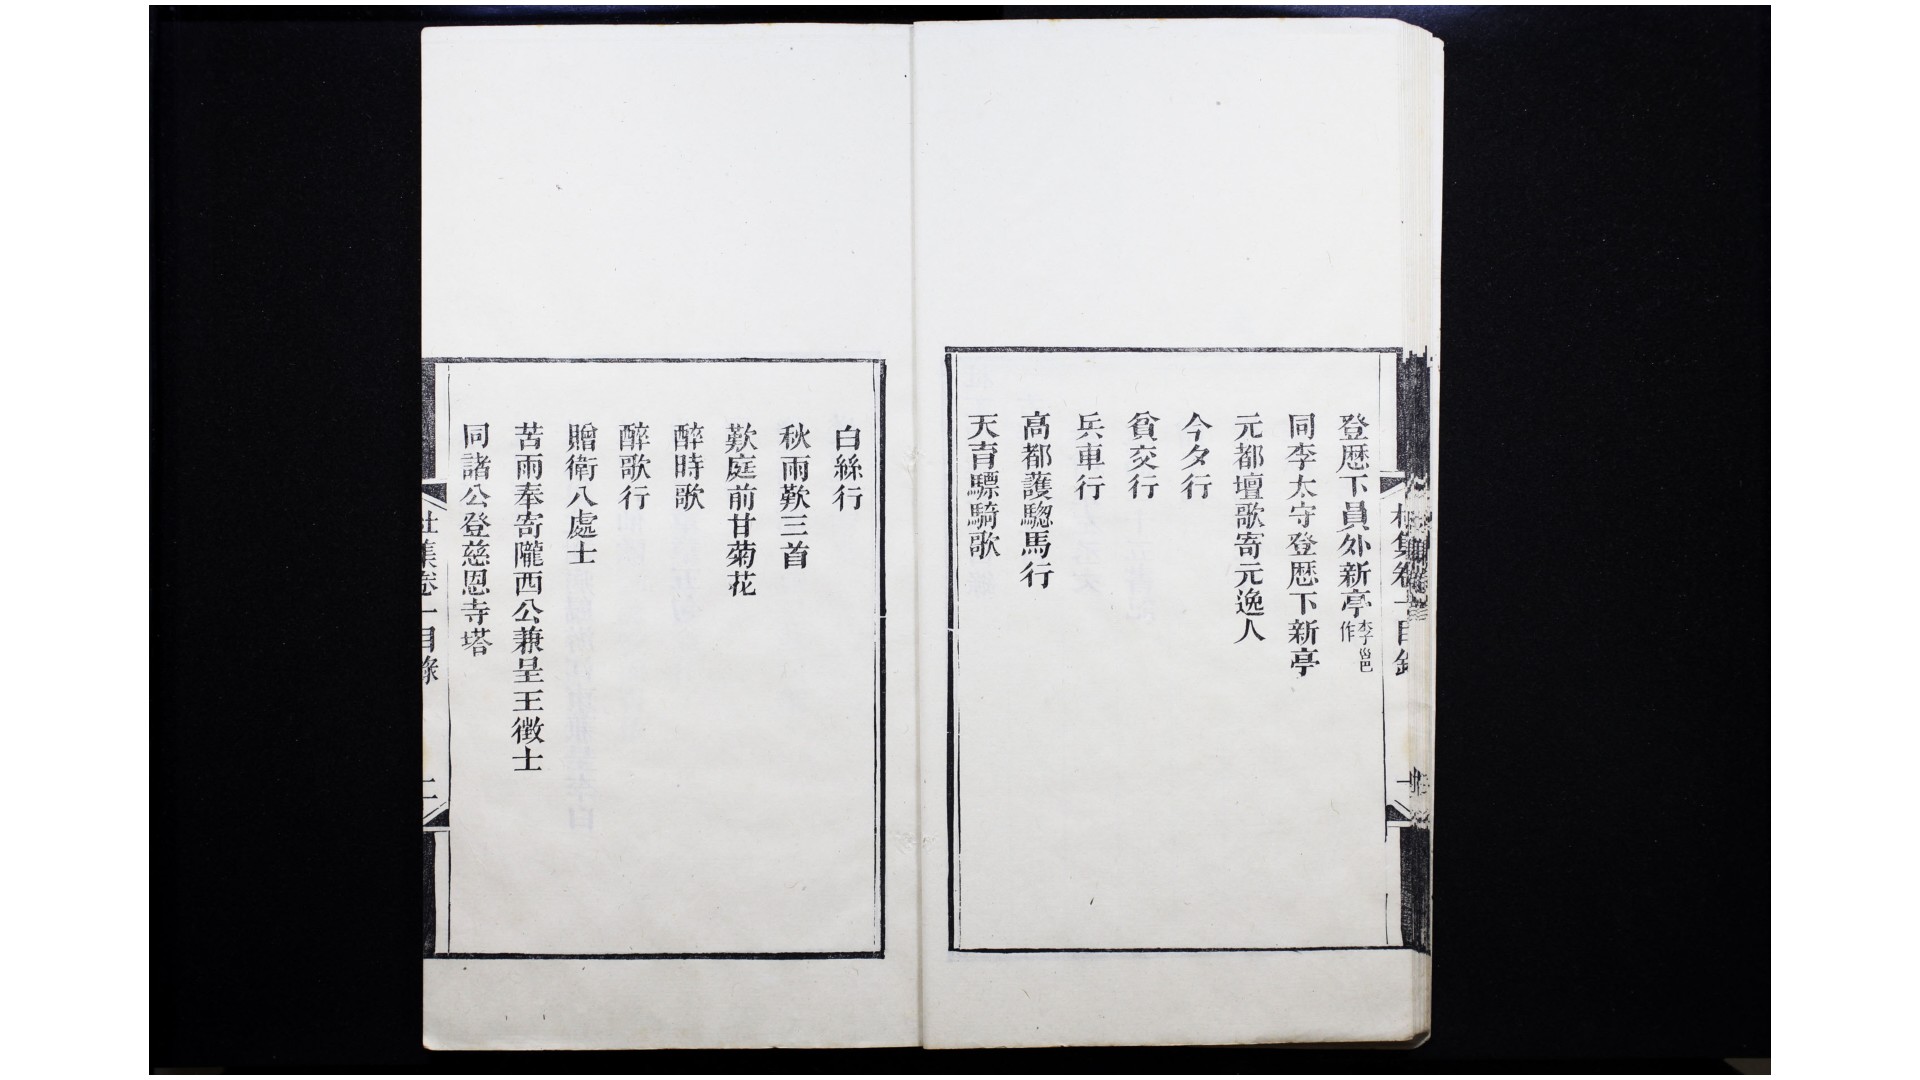 杜集卷一目錄
登歷下員外新亭李邕作
同李太守登歷下新亭
元都壇歌寄元逸人
今夕行
貧交行
兵車行
高都護驄馬行
天育驃騎歌
白絲行
秋雨歎三首
歎庭前甘菊花
醉時歌
醉歌行
贈衛八處士
苦雨奉寄隴西公兼呈王徵士
同諸公登慈恩寺塔
杜集卷一目錄
二